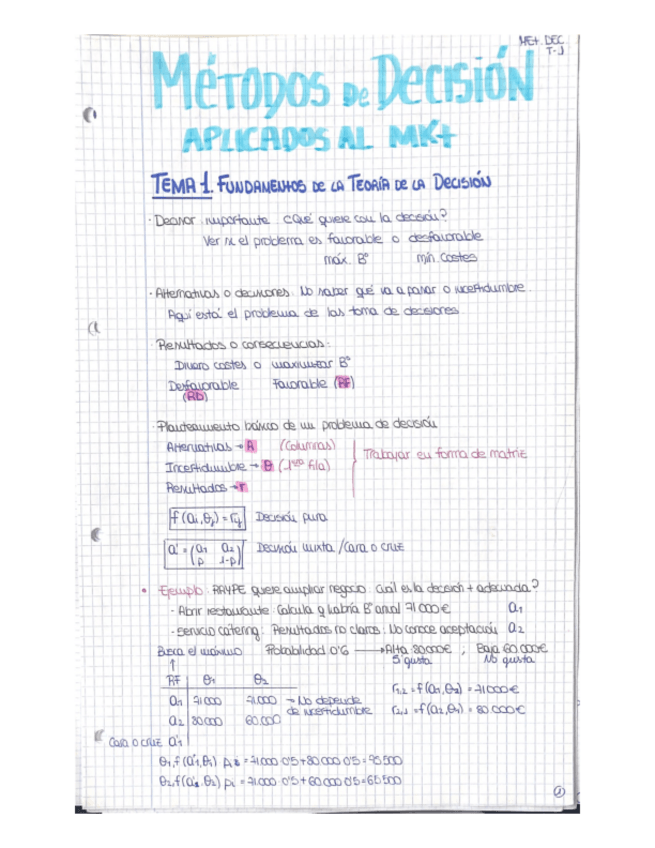 MEt. DEC
T-1
MÉTODOS DE DECISIÓN
APLICADOS AL MKt
TEMA 1. FUNDAMENTOS DE LA TEORÍA DE LA DECISIÓN
· Decisor importante ¿Qué quiere con la decisión?
Ver si el problema es favorable o desfavorable
máx. Bº mín. Costes
· Alternativas o decisiones: No saber qué va a pasar o incertidumbre.
Aquí está el problema de las toma de decisiones
· Resultados o consecuencias:
costes o maximizar Bº
Desfavorable Favorable (RF)
(RD)
· Planteamiento básico de un problema de decisión
Alternativas → A (Columnas)
Incertidumbre → θ (1era fila) Trabajar en forma de matriz
Resultados → r
f (ai, θj) = rij Decisión pura
a' = (a1 a2 Decisión mixta / Cara o cruz
p 1-p)
• Ejemplo: quiere ampliar negocio. Cuál es la decisión + adecuada?
· Abrir restaurante: Calcula q habría Bº anual 71000€ a1
· Servicio cátering: Resultados no claros: No conoce aceptación a2
Busca el máximo Probabilidad 0'6 → Alta 80000€ ; Baja 60000€
↑ Sí gusta No gusta
RF θ1 θ2
a1 71000 71000 → No depende de incertidumbre r1,2 = f(a1,θ2) = 71000€
a2 80000 60000 r2,1 = f(a2,θ1) = 80000€
Cara o cruz a'1
θ1,f (a'1,θ1) pi = 71000·0'5+80000·0'5 = 75500
θ2,f(a'1,θ2) pi = 71000·0'5+60000·0'5 = 65500
1